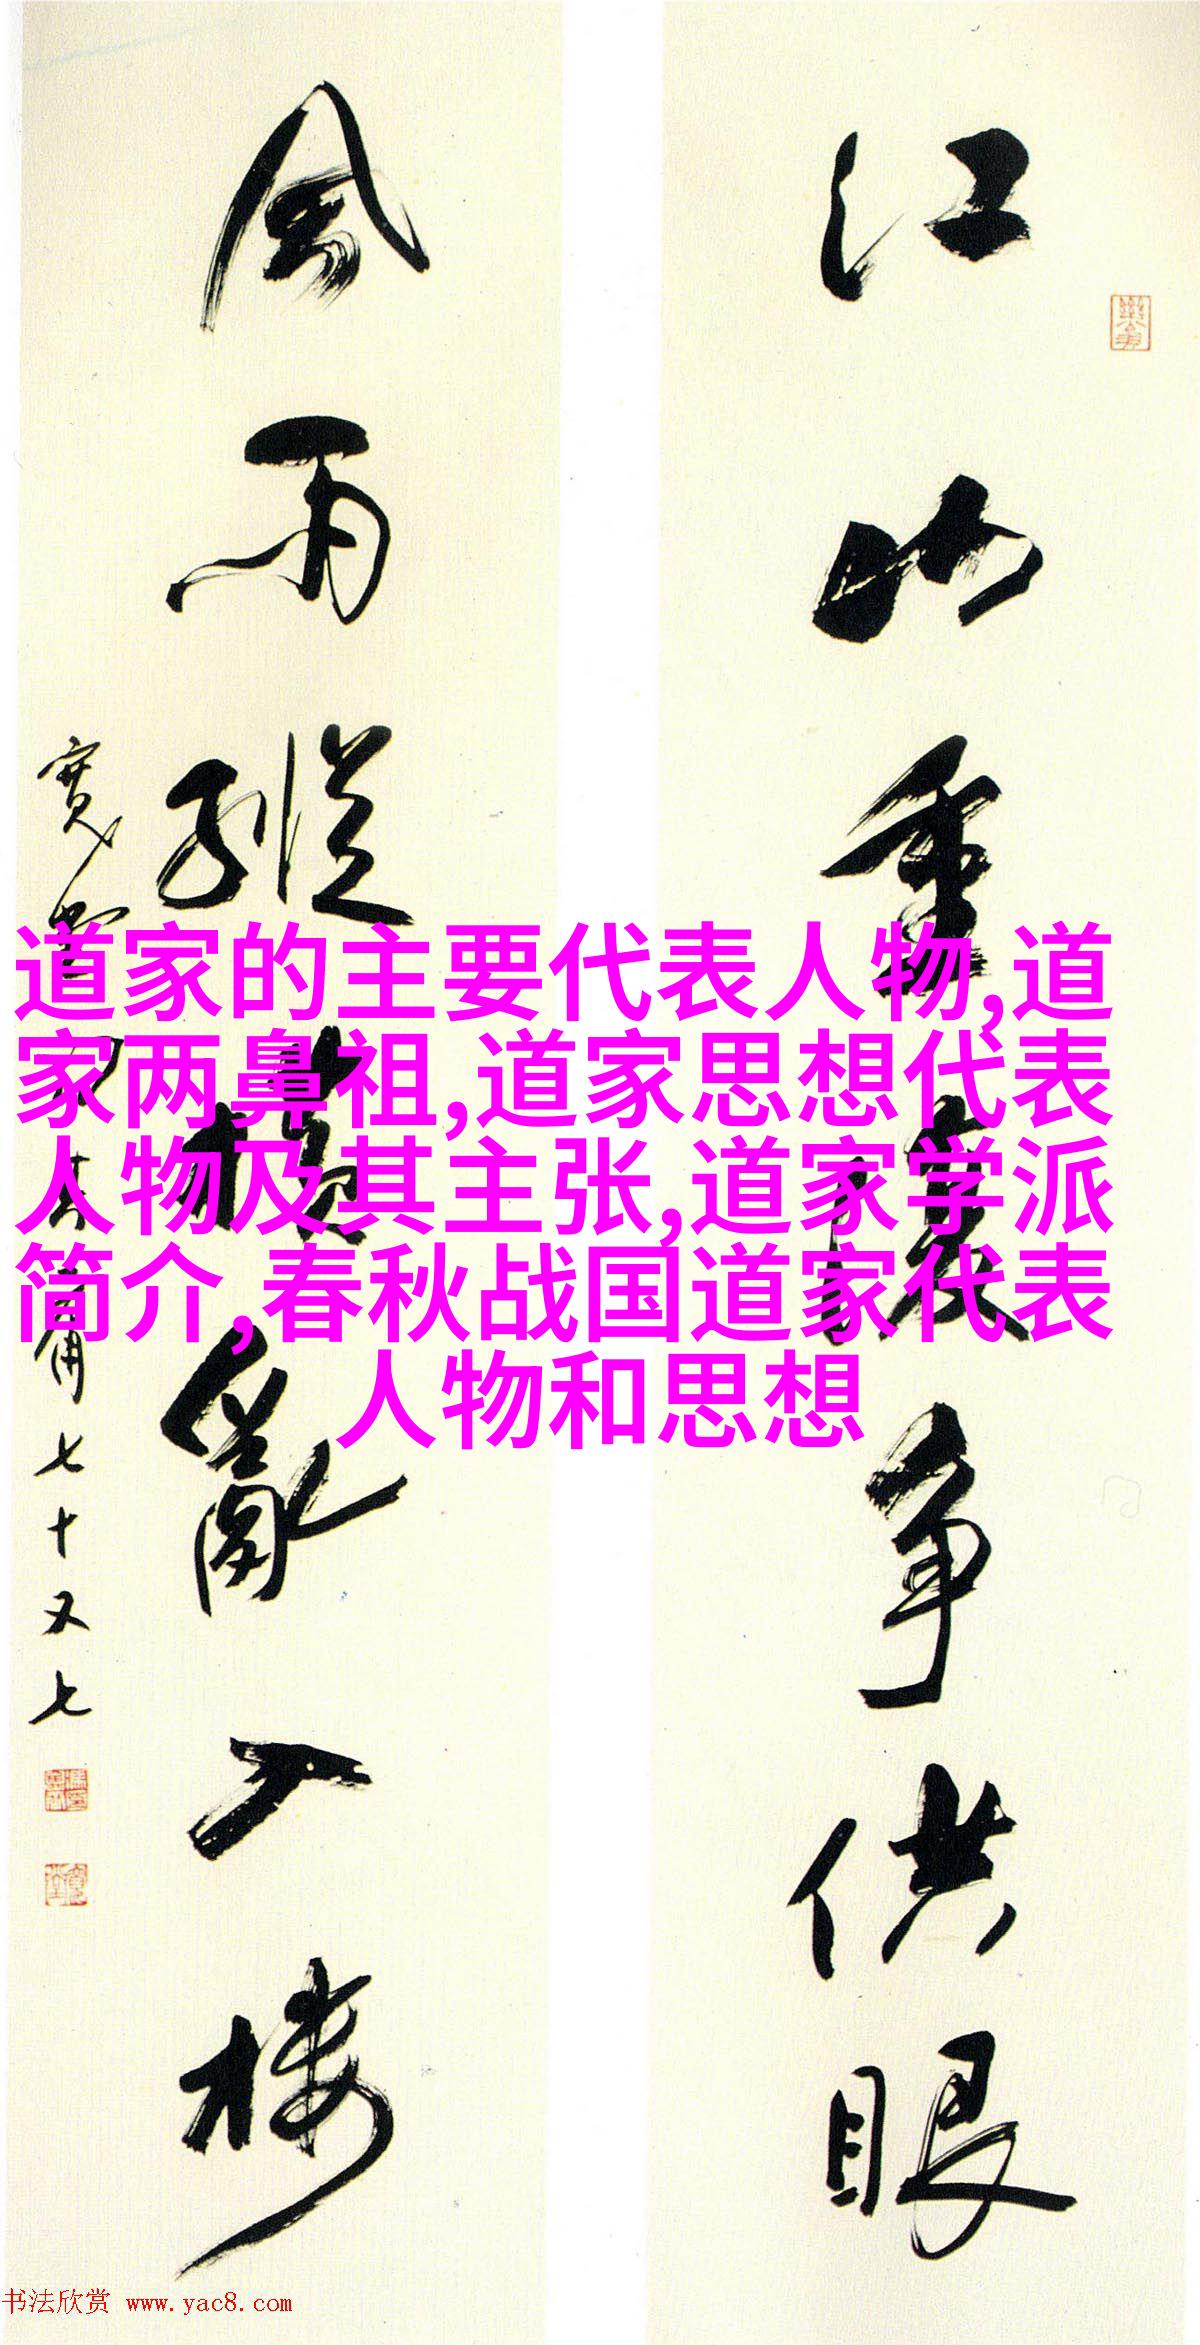 江山重複争供眼
風雨縱橫亂入樓
寬堂馮其庸七十又七
道家的主要代表人物,道
家两鼻祖,道家思想代表
人物及其主张,道家学派
简介,春秋战国道家代表
人物和思想
书法欣赏 www.yac8.com